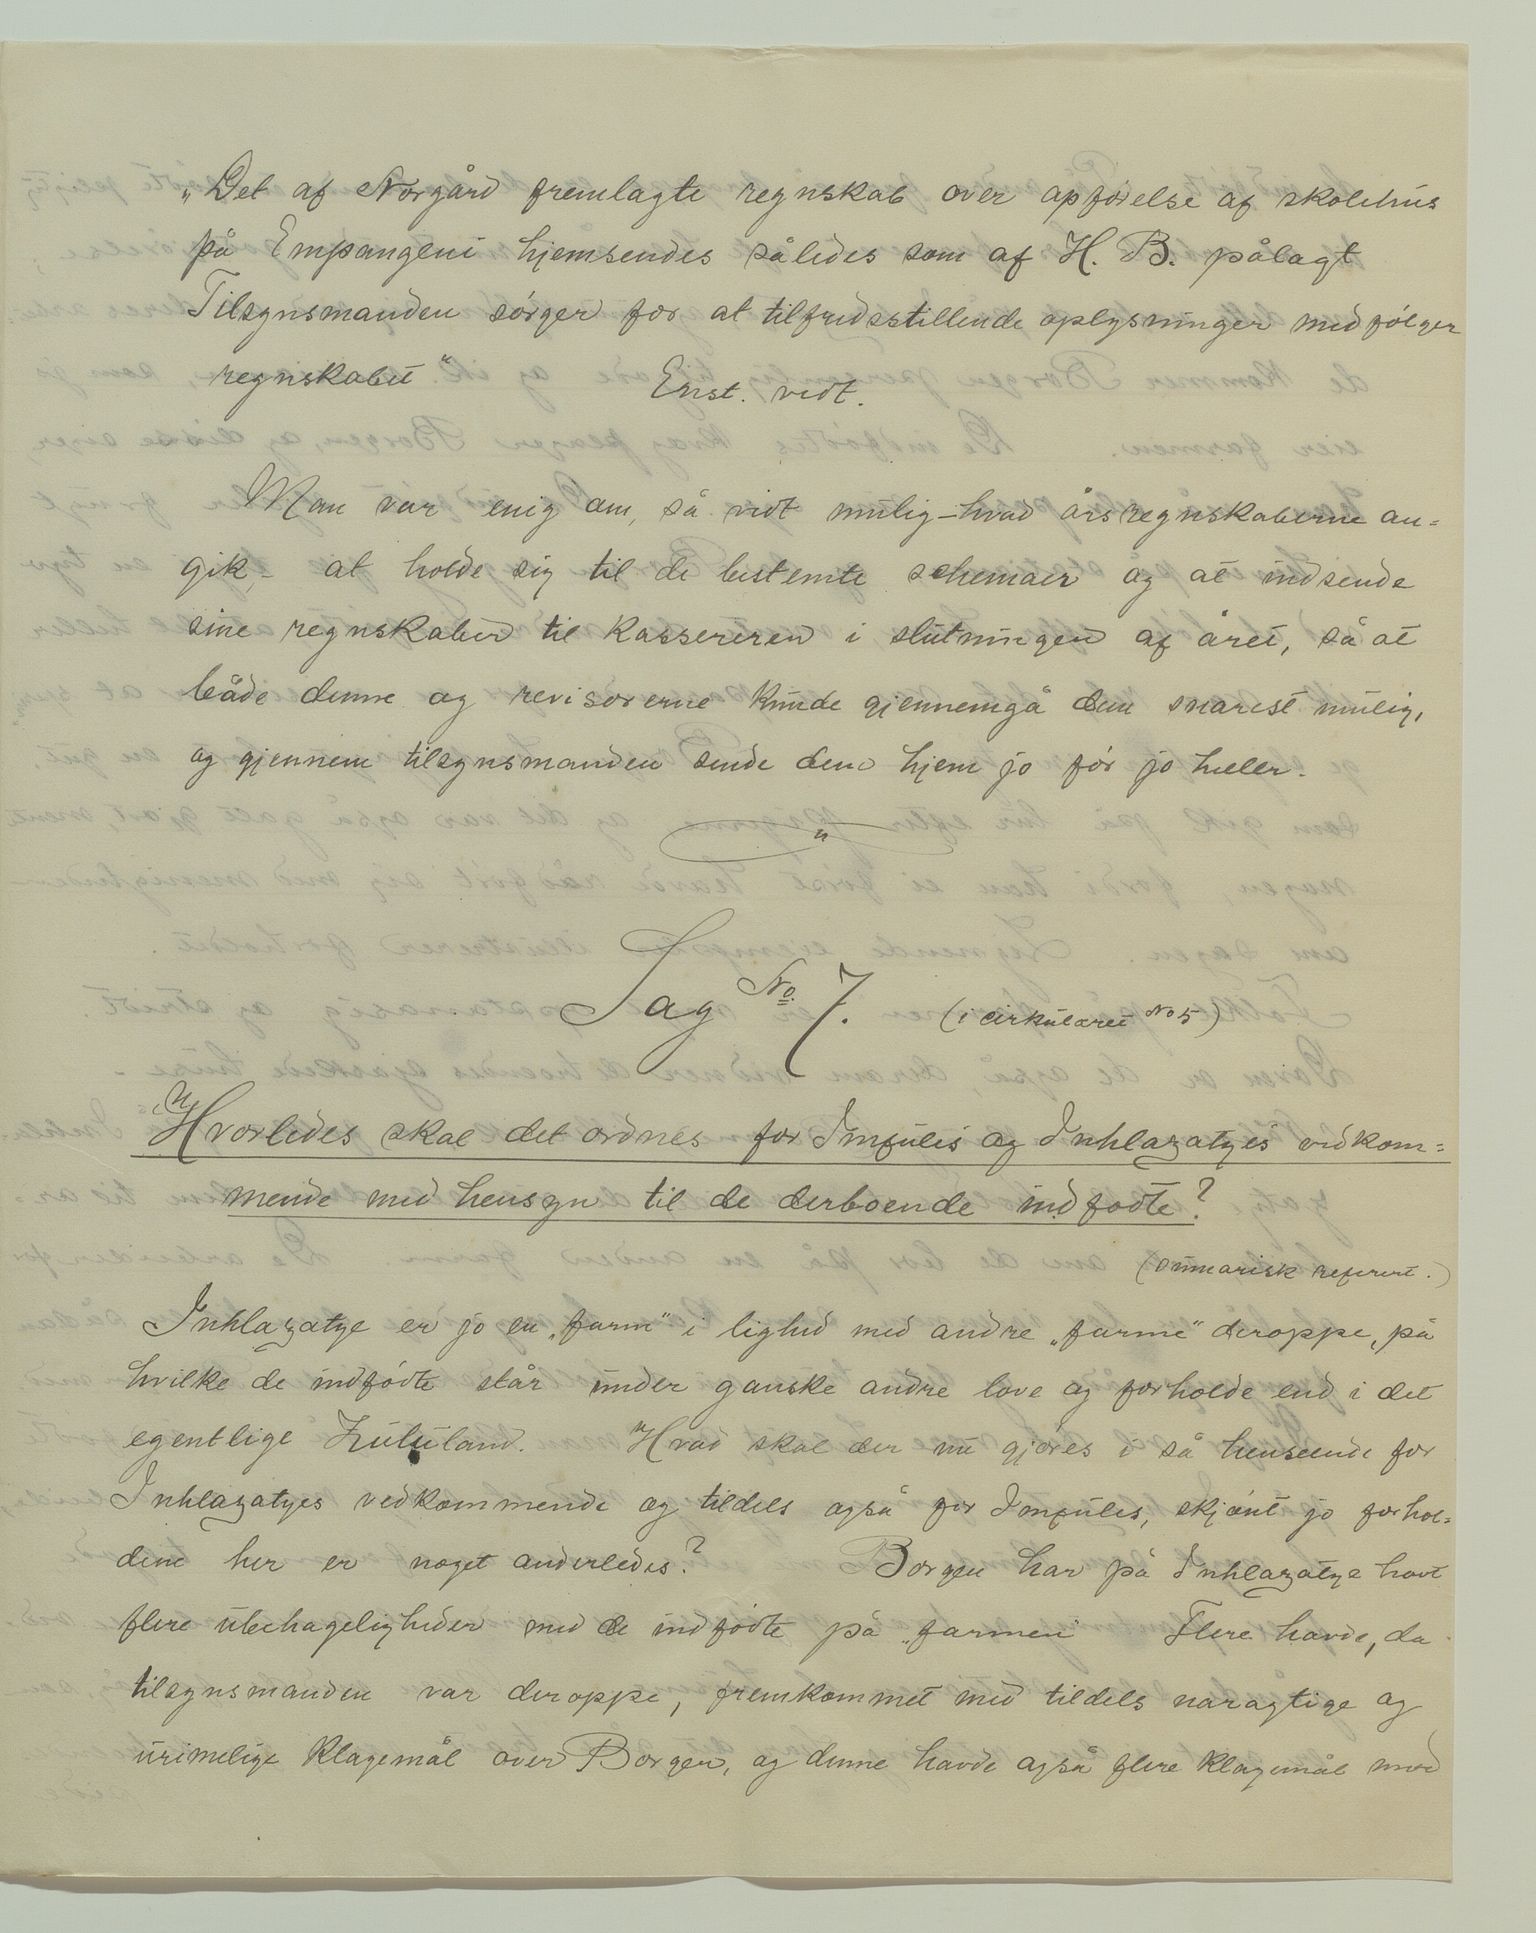 „Det af Norgård fremlagte regnskab over opførelse af skolehus
på Empangeni hjemsendes således som af H. B. pålagt
Tilsynsmanden sørger for at tilfredsstillende oplysninger medfølger
regnskabet“ Enst. vedt.
Man var enig om, så vidt mulig – hvad årsregnskaberne an=
gik – at holde sig til de bestemte schemaer og at indsende
sine regnskaber til kassereren i slutningen af året, så at
både denne og revisorerne kunde gjennemgå dem snarest mulig,
og gjennem tilsynsmanden sende dem hjem jo før jo heller.
Sag No. 7. (i cirkulæret No 5)
„Hvorledes skal det ordnes for Imfules og Inhlazatyes vedkom=
mende med hensyn til de derboende indfødte?
(summarisk referert.)
Inhlazatye er jo en „farm“ i lighed med andre „farme“ deroppe, på
hvilke de indfødte står under ganske andre love og forholde end i det
egentlige Zululand. „Hvad skal der nu gjøres i så henseende for
Inhlazatyes vedkommende og tildels også for Imfules, skjønt jo forhol=
dene her er noget anderledes? Borgen har på Inhlazatye havt
flere ubehageligheder med de indfødte på „farmen“ Flere havde, da
tilsynsmanden var deroppe, fremkommet med tildels naragtige og
urimelige klagemål over Borgen, og denne havde også flere klagemål mod